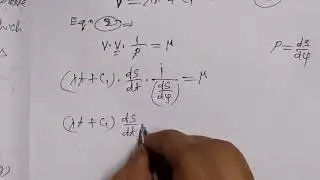 Eqn ②⇒
V · V · 1/ρ = μ
ρ = ds/dψ
(λt + C₁) · ds/dt · 1/(ds/dψ) = μ
(λt + C₁) ds/dt